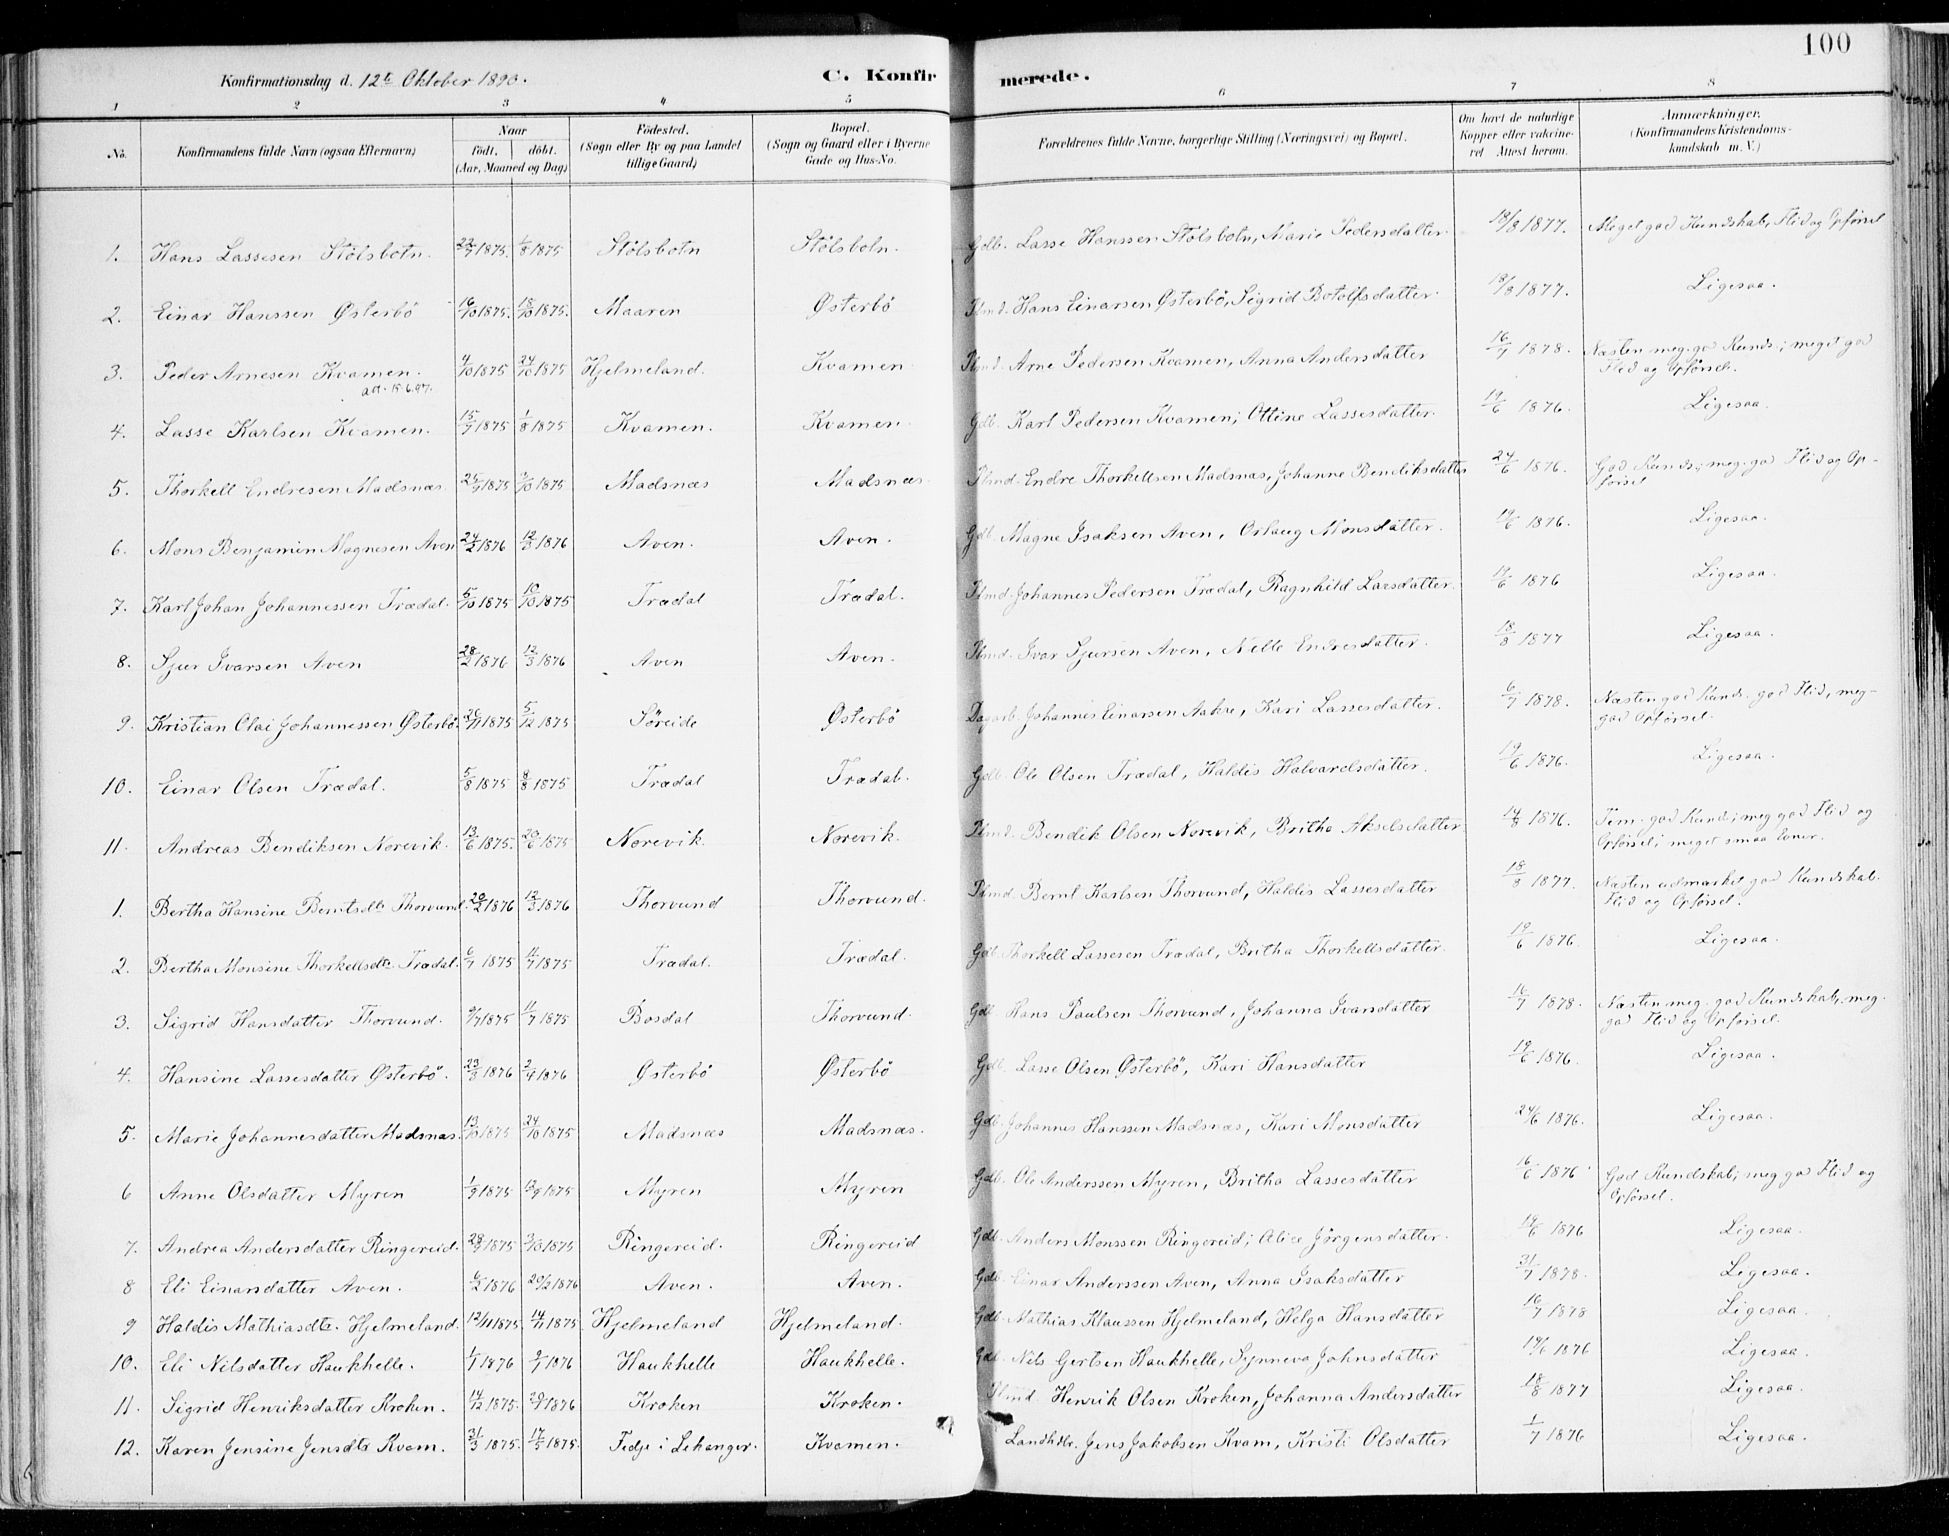 100
Konfirmationsdag d. 12te Oktober 1890. C. Konfirmerede.
1 2 3 4 5 6 7 8
No. Konfirmandens fulde Navn (ogsaa Efternavn) Naar födt, döbt. (Aar, Maaned og Dag) Födested. (Sogn eller By og paa Landet tillige Gaard) Bopæl. (Sogn og Gaard eller i Byerne Gade og Hus-No. Forældrenes fulde Navne, borgerlige Stilling (Næringsvei) og Bopæl. Om havt de naturlige Kopper eller vaksineret Attest herom. Anmærkninger. (Konfirmandens Kristendomskundskab m. V.)
1. Hans Lassesen Stölsbotn. 1875. 1/8 1875 Stölsbotn Stölsbotn. Gdb. Lasse Hanssen Stölsbotn, Marie Pedersdatter. 18/8 1877. Meget god Kundskab, Flid og Opförsel
2. Einar Hanssen Østerbö 16/10 1875. 18/10 1875. Maaren Østerbö Plmd. Hans Einarsen Østerbö, Sigrid Botolfsdatter. 18/8 1877. Ligesaa.
3. Peder Arnesen Kvamen. 4/10 1875 24/10 1875 Hjelmeland. Kvamen. Plmd. Arne Pedersen Kvamen, Anna Andersdatter 16/7 1878. Næsten meg. god Kunds.; meget god
att. 15.6.97. Flid og Opförsel.
4. Lasse Karlsen Kvamen. 15/7 1875 1/8 1875 Kvamen. Kvamen. Gdb. Karl Pedersen Kvamen; Olline Lassesdatter. 19/6 1876. Ligesaa.
5. Thorkell Endresen Madsnæs 25/9 1875 3/10 1875 Madsnæs Madsnæs. Plmd. Endre Thorkellsen Madsnæs, Johanne Bendiksdatter 24/6 1876. God Kunds; meg. god Flid og Op-
försel
6. Mons Benjamin Magnesen Aven 24/2 1876 12/3 1876 Aven. Aven. Gdb. Magne Isaksen Aven, Orlaug Monsdatter. 19/6 1876. Ligesaa.
7. Karl Johan Johannessen Trædal. 5/10 1875 10/10 1875 Trædal Trædal. Plmd. Johannes Pedersen Trædal, Ragnhild Larsdatter. 1876 Ligesaa.
8. Sjur Ivarsen Aven 28/2 1876 12/3 1876 Aven Aven. Plmd. Ivar Sjursen Aven, Nille Endresdatter. 18/8 1877 Ligesaa.
9. Kristian Olai Johannessen Østerbö. 26/11 1875 5/12 1875 Söreide Østerbö Dagarb. Johannes Einarsen Aakre, Kari Lassesdatter. 6/7 1878. Næsten god Kunds. god Flid, meg-
god Opförsel.
10. Einar Olsen Trædal. 5/8 1875 8/8 1875 Trædal Trædal. Gdb. Ole Olsen Trædal, Haldis Halvardsdatter. 19/6 1876. Ligesaa.
11. Andreas Bendiksen Norevik. 13/6 1875. 20/6 1875 Norevik. Norevik. Plmd. Bendik Olsen Norevik, Britha Akselsdatter 14/8 1876. Tem. god Kund; meg god Flid og
Opförsel; meget smaa Evner.
1. Bertha Hansine Berntsdtr. Thorvund. 20/2 1876 12/3 1876 Thorvund Thorvund. Plmd. Bernt Karlsen Thorvund, Haldis Lassesdatter 18/8 1877. Næsten udmærket god Kundskab.
Flid og Opförsel.
2. Bertha Monsine Thorkellsdtr. Trædal. 6/7 1875 11/7 1875 Trædal. Trædal. Gdb. Thorkell Lassesen Trædal, Britha Thorkellsdatter. 19/6 1876. Ligesaa.
3. Sigrid Hansdatter Thorvund. 9/7 1875 11/7 1875 Bosdal Thorvund. Gdb. Hans Paulsen Thorvund, Johanna Ivarsdatter 16/7 1878. Næsten meg. god Kundskab, meg.
god Flid og Opförsel.
4. Hansine Lassesdatter Østerbö. 23/3 1876 2/4 1876 Østerbö Østerbö Gdb. Lasse Olsen Østerbö, Kari Hansdatter 19/6 1876. Ligesaa.
5. Marie Johannesdatter Madsnæs. 19/10 1875 24/10 1875 Madsnæs Madsnæs. Gdb. Johannes Hanssen Madsnæs, Kari Monsdatter 24/6 1876. Ligesaa.
6 Anne Olsdatter Myren 1/9 1875 12/9 1875 Myren Myren Gdb. Ole Anderssen Myren, Britha Lassesdatter 16/6 1876 God Kundskab; meg god Flid og
Opförsel.
7. Andrea Andersdatter Ringereid. 28/9 1875 3/10 1875 Ringereid. Ringereid Gdb. Anders Monssen Ringereid; Alice Jörgensdatter. 19/6 1876 Ligesaa.
8 Eli Einarsdatter Aven. 1876 20/2 1876 Aven. Aven. Gdb. Einar Anderssen Aven, Anna Isaksdatter 31/7 1878. Ligesaa.
9 Haldis Mathiasdtr. Hjelmeland. 12/11 1875 14/11 1875 Hjelmeland Hjelmeland. Gdb. Mathias Klaussen Hjelmeland, Helga Hansdatter 16/7 1878 Ligesaa.
10. Eli Nilsdatter Haukhelle. 1/7 1876 9/7 1876 Haukhelle Haukhelle. Gdb. Nils Gertsen Haukhelle, Synneva Johnsdatter 19/6 1876 Ligesaa.
11. Sigrid Henriksdatter Kroken. 14/12 1875. 1876 Kroken Kroken. Plmd. Henrik Olsen Kroken, Johanna Andersdatter 18/8 1877 Ligesaa.
12. Karen Jensine Jensdtr. Kvam. 31/3 1875. 17/5 1875. Tedje i Lehanger. Kvamen. Landhdlr. Jens Jakobsen Kvam, Kristi Olsdatter 1/7 1876 Ligesaa.